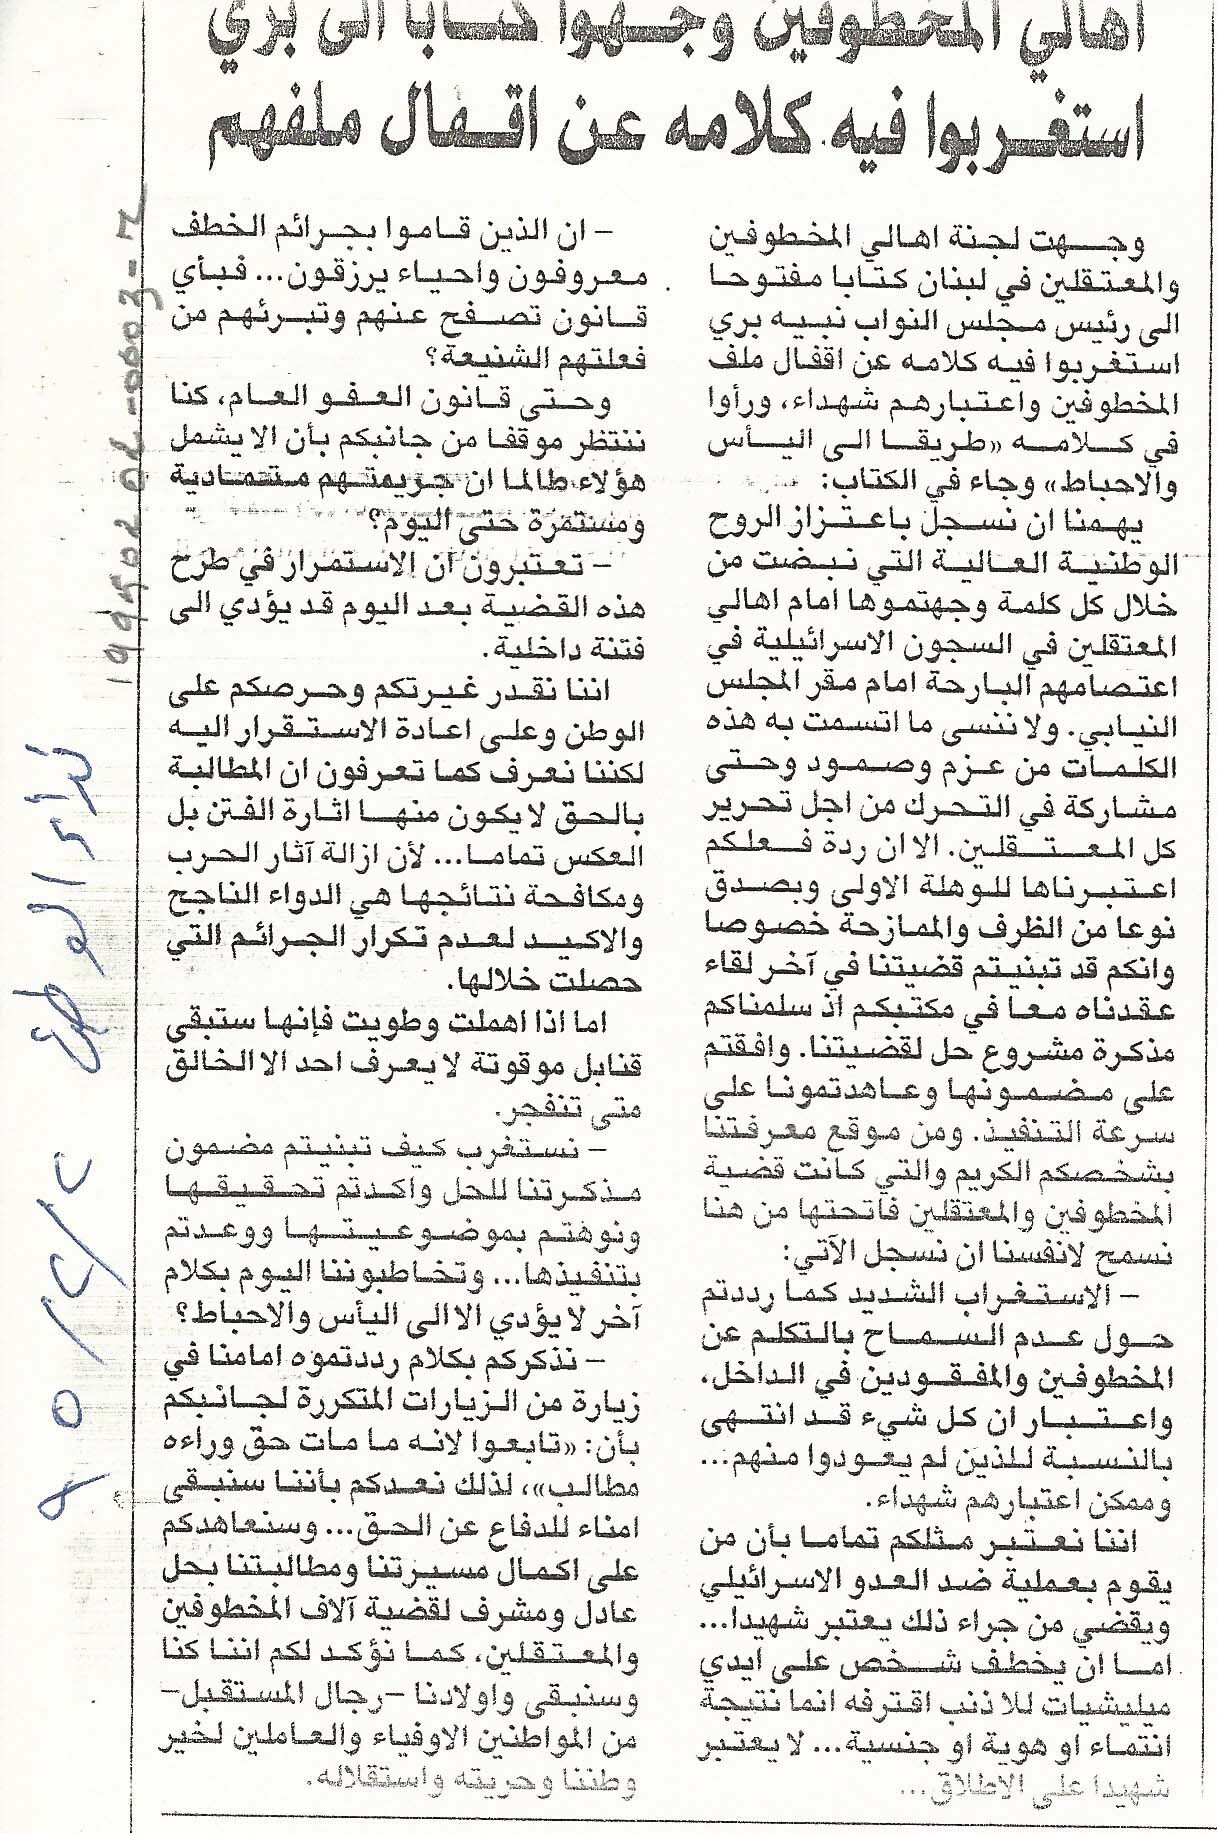 اهالي المخطوفين وجهوا كتابا الى بري
استغربوا فيه كلامه عن اقفال ملفهم
وجهت لجنة اهالي المخطوفين
والمعتقلين في لبنان كتابا مفتوحا
الى رئيس مجلس النواب نبيه بري
استغربوا فيه كلامه عن اقفال ملف
المخطوفين واعتبارهم شهداء، ورأوا
في كلامه «طريقا الى اليأس
والاحباط» وجاء في الكتاب:
يهمنا ان نسجل باعتزاز الروح
الوطنية العالية التي نبضت من
خلال كل كلمة وجهتموها امام اهالي
المعتقلين في السجون الاسرائيلية في
اعتصامهم البارحة امام مقر المجلس
النيابي. ولا ننسى ما اتسمت به هذه
الكلمات من عزم وصمود وحتى
مشاركة في التحرك من اجل تحرير
كل المعتقلين. الا ان ردة فعلكم
اعتبرناها للوهلة الاولى وبصدق
نوعا من الظرف والممازحة خصوصا
وانكم قد تبنيتم قضيتنا في آخر لقاء
عقدناه معا في مكتبكم اذ سلمناكم
مذكرة مشروع حل لقضيتنا. وافقتم
على مضمونها وعاهدتمونا على
سرعة التنفيذ. ومن موقع معرفتنا
بشخصكم الكريم والتي كانت قضية
المخطوفين والمعتقلين فاتحتها من هنا
نسمح لانفسنا ان نسجل الآتي:
– الاستغراب الشديد كما رددتم
حول عدم السماح بالتكلم عن
المخطوفين والمفقودين في الداخل،
واعتبار ان كل شيء قد انتهى
بالنسبة للذين لم يعودوا منهم...
وممكن اعتبارهم شهداء.
اننا نعتبر مثلكم تماما بأن من
يقوم بعملية ضد العدو الاسرائيلي
ويقضي من جراء ذلك يعتبر شهيدا...
اما ان يخطف شخص على ايدي
ميليشيات للا ذنب اقترفه انما نتيجة
انتماء او هوية او جنسية... لا يعتبر
شهيدا على الاطلاق...
– ان الذين قاموا بجرائم الخطف
معروفون واحياء يرزقون... فبأي
قانون تصفح عنهم وتبرئهم من
فعلتهم الشنيعة؟
وحتى قانون العفو العام، كنا
ننتظر موقفا من جانبكم بأن الا يشمل
هؤلاء طالما ان جريمتهم متمادية
ومستمرة حتى اليوم؟
– تعتبرون ان الاستمرار في طرح
هذه القضية بعد اليوم قد يؤدي الى
فتنة داخلية.
اننا نقدر غيرتكم وحرصكم على
الوطن وعلى اعادة الاستقرار اليه
لكننا نعرف كما تعرفون ان المطالبة
بالحق لا يكون منها اثارة الفتن بل
العكس تماما... لأن ازالة آثار الحرب
ومكافحة نتائجها هي الدواء الناجح
والاكيد لعدم تكرار الجرائم التي
حصلت خلالها.
اما اذا اهملت وطويت فإنها ستبقى
قنابل موقوتة لا يعرف احد الا الخالق
متى تنفجر.
– نستغرب كيف تبنيتم مضمون
مذكرتنا للحل واكدتم تحقيقها
ونوهتم بموضوعيتها ووعدتم
بتنفيذها... وتخاطبوننا اليوم بكلام
آخر لا يؤدي الا الى اليأس والاحباط؟
– نذكركم بكلام رددتموه امامنا في
زيارة من الزيارات المتكررة لجانبكم
بأن: «تابعوا لانه ما مات حق وراءه
مطالب»، لذلك نعدكم بأننا سنبقى
امناء للدفاع عن الحق... وسنعاهدكم
على اكمال مسيرتنا ومطالبتنا بحل
عادل ومشرف لقضية آلاف المخطوفين
والمعتقلين، كما نؤكد لكم اننا كنا
وسنبقى واولادنا –رجال المستقبل–
من المواطنين الاوفياء والعاملين لخير
وطننا وحريته واستقلاله.
نداء الوطن